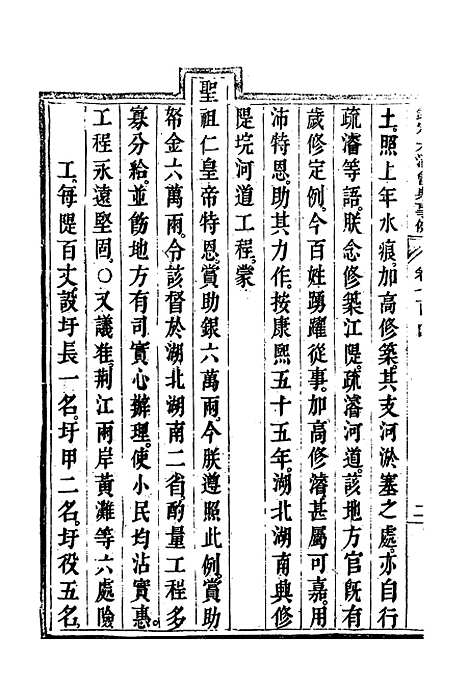 土。照上年水痕。加高修築。其支河淤塞之處。亦自行
疏濬等語。朕念修築江隄。疏濬河道。該地方官旣有
歲修定例。今百姓踴躍從事。加高修濬。甚屬可嘉。用
沛特恩。助其力作。按康熙五十五年。湖北湖南興修
隄垸河道工程。蒙
聖祖仁皇帝特恩。賞助銀六萬兩。今朕遵照此例。賞助
帑金六萬兩。令該督於湖北湖南二省。酌量工程多
寡分給。並飭地方有司。實心辦理。使小民均沾實惠。
工程永遠堅固。○又議准。荆江兩岸黃灘等六處險
工。每隄百丈。設圩長一名。圩甲二名。圩役五名。